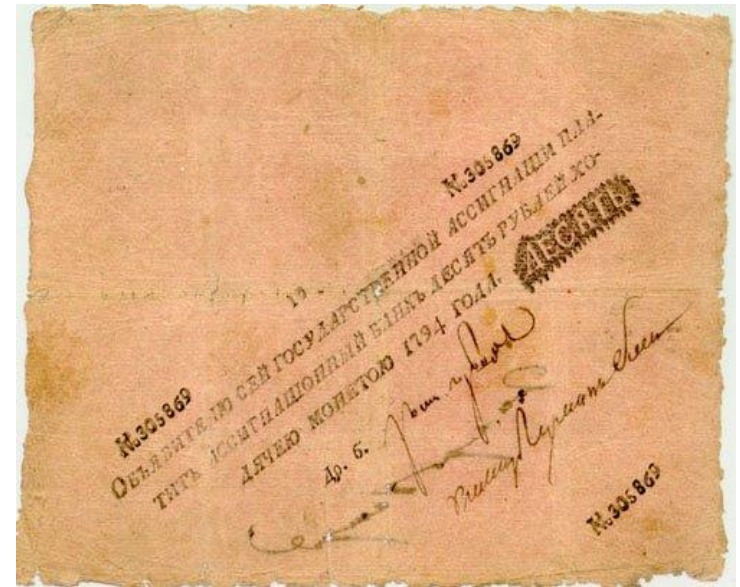 №305869
10
№305869
Объявителю сей государственной ассигнации пла-
тить ассигнационный банкъ десять рублей хо-
дячею монетою 1794 года.
ДЕСЯТЬ
Др. б.
№305869